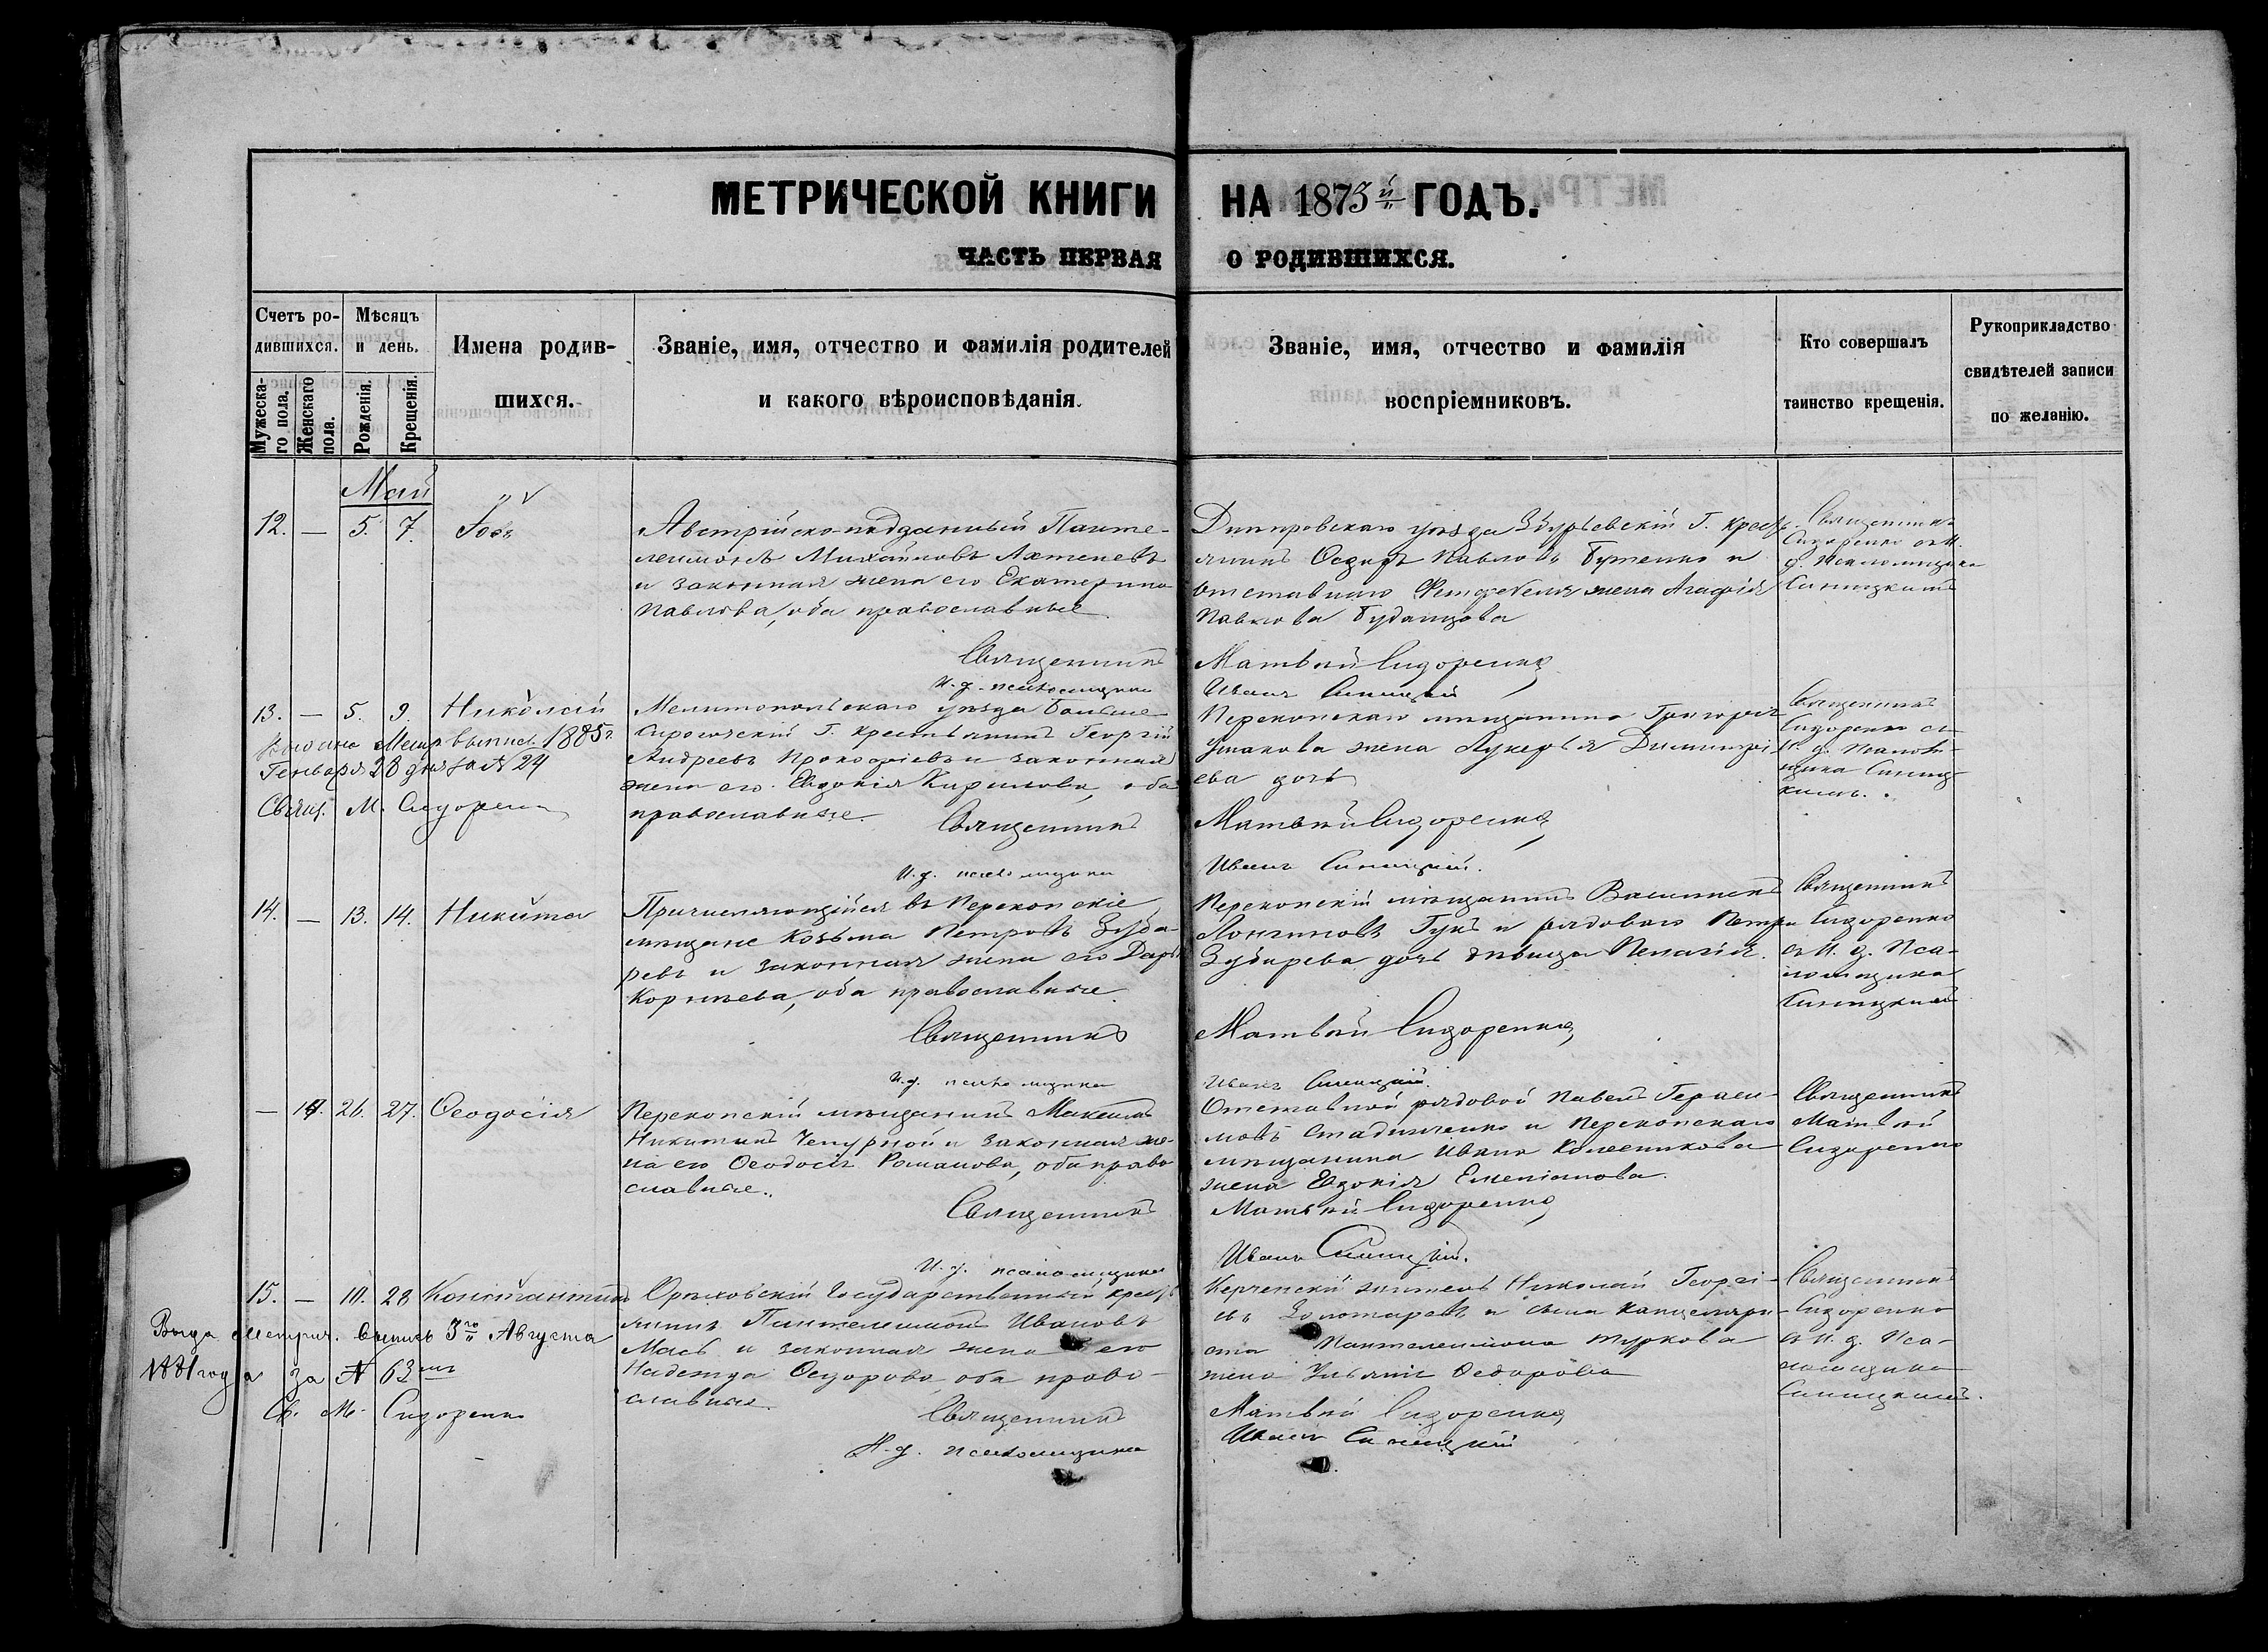 МЕТРИЧЕСКОЙ КНИГИ НА 1873й ГОДЪ.
ЧАСТЬ ПЕРВАЯ О РОДИВШИХСЯ.
Счетъ ро-
дившихся.
Мужеска-
го пола.
Женскаго
пола.
Мѣсяцъ
и день.
Рожденія.
Крещенія.
Имена родив-
шихся.
Званіе, имя, отчество и фамилія родителей
и какого вѣроисповѣданія.
Званіе, имя, отчество и фамилія
воспріемниковъ.
Кто совершалъ
таинство крещенія.
Рукоприкладство
свидѣтелей записи
по желанію.
Май
12. — 5. 7. Іовъ
Австрійско-подданный Панте-
леимонъ Михайловъ
и законная жена его Екатерина
Павлова, оба православные
Священникъ
И. д. псаломщика
Днепровскаго уѣзда Збурьевскій Г. крест
янинъ Федоръ Павловъ Бутенко и
отставнаго Фельдфебеля жена Агафія
Павлова
Матвѣй Сидоренко
Иванъ Синицкій
Священникъ
Сидоренко съ И.
д. Псаломщика
Синицкимъ
13. — 5. 9. Николай
Выдана Метр. выпись 1885г.
Генваря 28 дня за № 24
Свящ. М. Сидоренко
Мелитопольскаго уѣзда Больше-
Сирогозскій Г. крестьянинъ Георгій
Андреевъ Прокофіевъ и законная
жена его Евдокія Кирилова, оба
православные.
Священникъ
И. д. псаломщика
Перекопскаго мѣщанина Григорія
Ушакова жена Лукерья Димитрі-
ева дочь
Матвѣй Сидоренко
Иванъ Синицкій.
Священникъ
Сидоренко съ
И. д. Псалом-
щика Синиц-
кимъ.
14. — 13. 14. Никита
Причисляющійся въ Перекопскіе
мѣщане Козьма Петровъ Зуба-
ревъ и законная жена его Дарья
Корнѣева, оба православные.
Священникъ
И. д. псаломщика
Перекопскій мѣщанинъ Василій
Лонгиновъ Гукъ и рядового Петра
Зубарева дочь дѣвица Пелагія.
Матвѣй Сидоренко
Иванъ Синицкій.
Священникъ
Сидоренко
съ И. д. Пса-
ломщика
Синицкимъ
— 14. 26. 27. Ѳеодосія
Перекопскій мѣщанинъ Максимъ
Никитинъ Чепурной и законная же-
на его Ѳеодосія Романова, оба право
славные.
Священникъ
И. д. псаломщика
Отставной рядовой Павелъ Гераси-
мовъ и Перекопскаго
мѣщанина Ивана Колесникова
жена Евдокія Емеліанова.
Матвѣй Сидоренко
Иванъ Синицкій.
Священникъ
Матвѣй
Сидоренко
15. — 10. 28 Константинъ
Выда метрич. выпись 3го Августа
1881 года за № 63мъ
Св. М. Сидоренко
Орѣховскій Государственный крест
янинъ Пантелеимонъ Ивановъ
Мась и законная жена его
Надежда Ѳедорова оба право-
славные.
Священникъ
И. д. псаломщика
Керченскій житель Николай Георгі-
евъ Золотаревъ и сына канцеляри-
ста Пантелеимона Туркова
жена Ульянія Ѳедорова
Матвѣй Сидоренко
Иванъ Синицкій
Священникъ
Сидоренко
съ И. д. Пса-
ломщика
Синицкимъ.